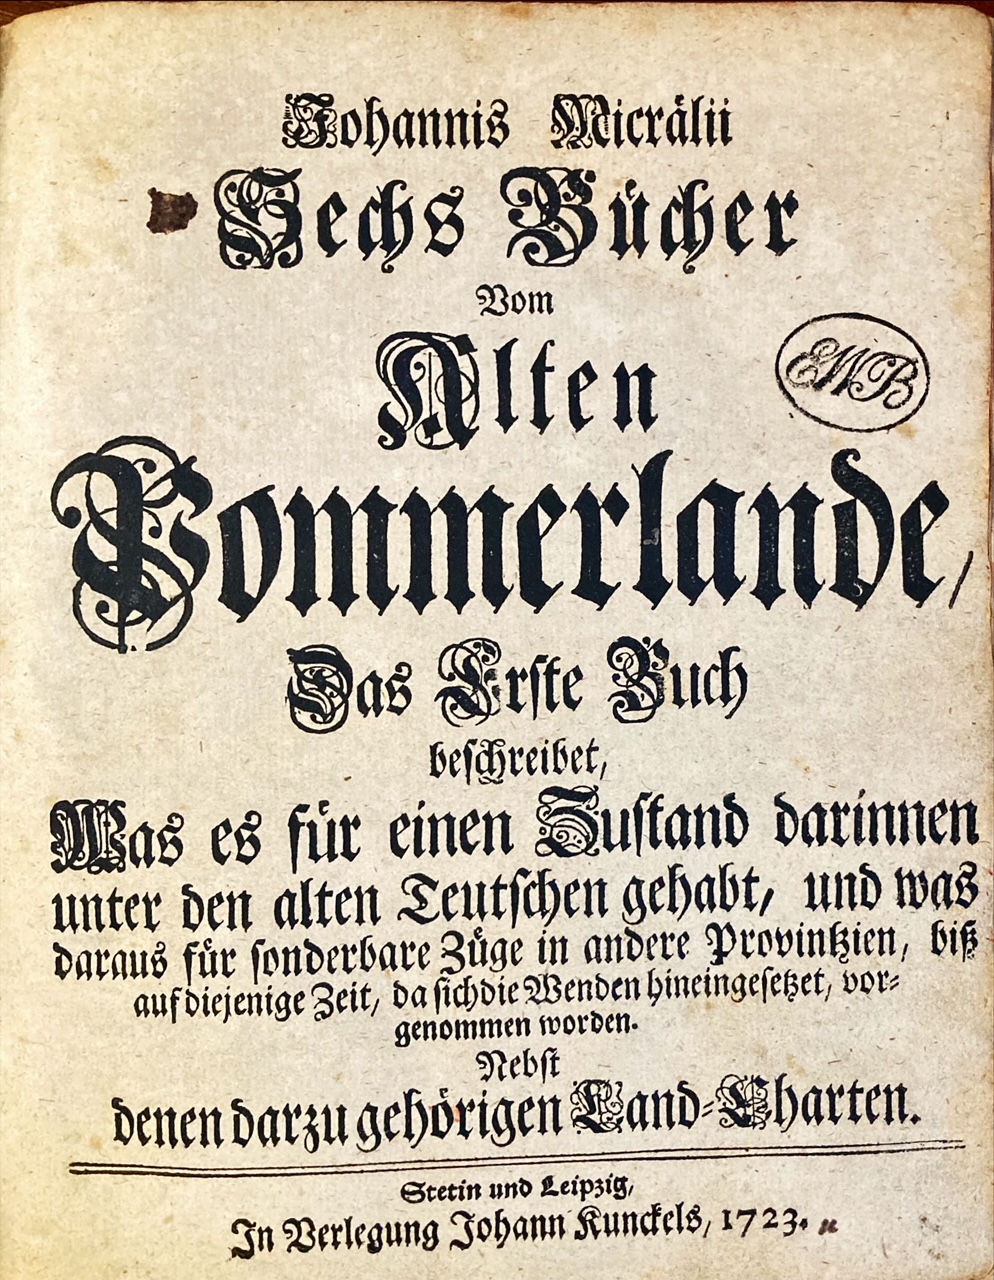 Johannis Micrälii
Sechs Bücher
Vom
Alten
EWB
Pommerlande,
Das Erste Buch
beschreibet,
Was es für einen Zustand darinnen
unter den alten Teutschen gehabt, und was
daraus für sonderbare Züge in andere Provintzien, biß
auf diejenige Zeit, da sich die Wenden hineingesetzet, vor-
genommen worden.
Nebst
denen darzu gehörigen Land-Charten.
Stetin und Leipzig,
In Verlegung Johann Kunckels, 1723.